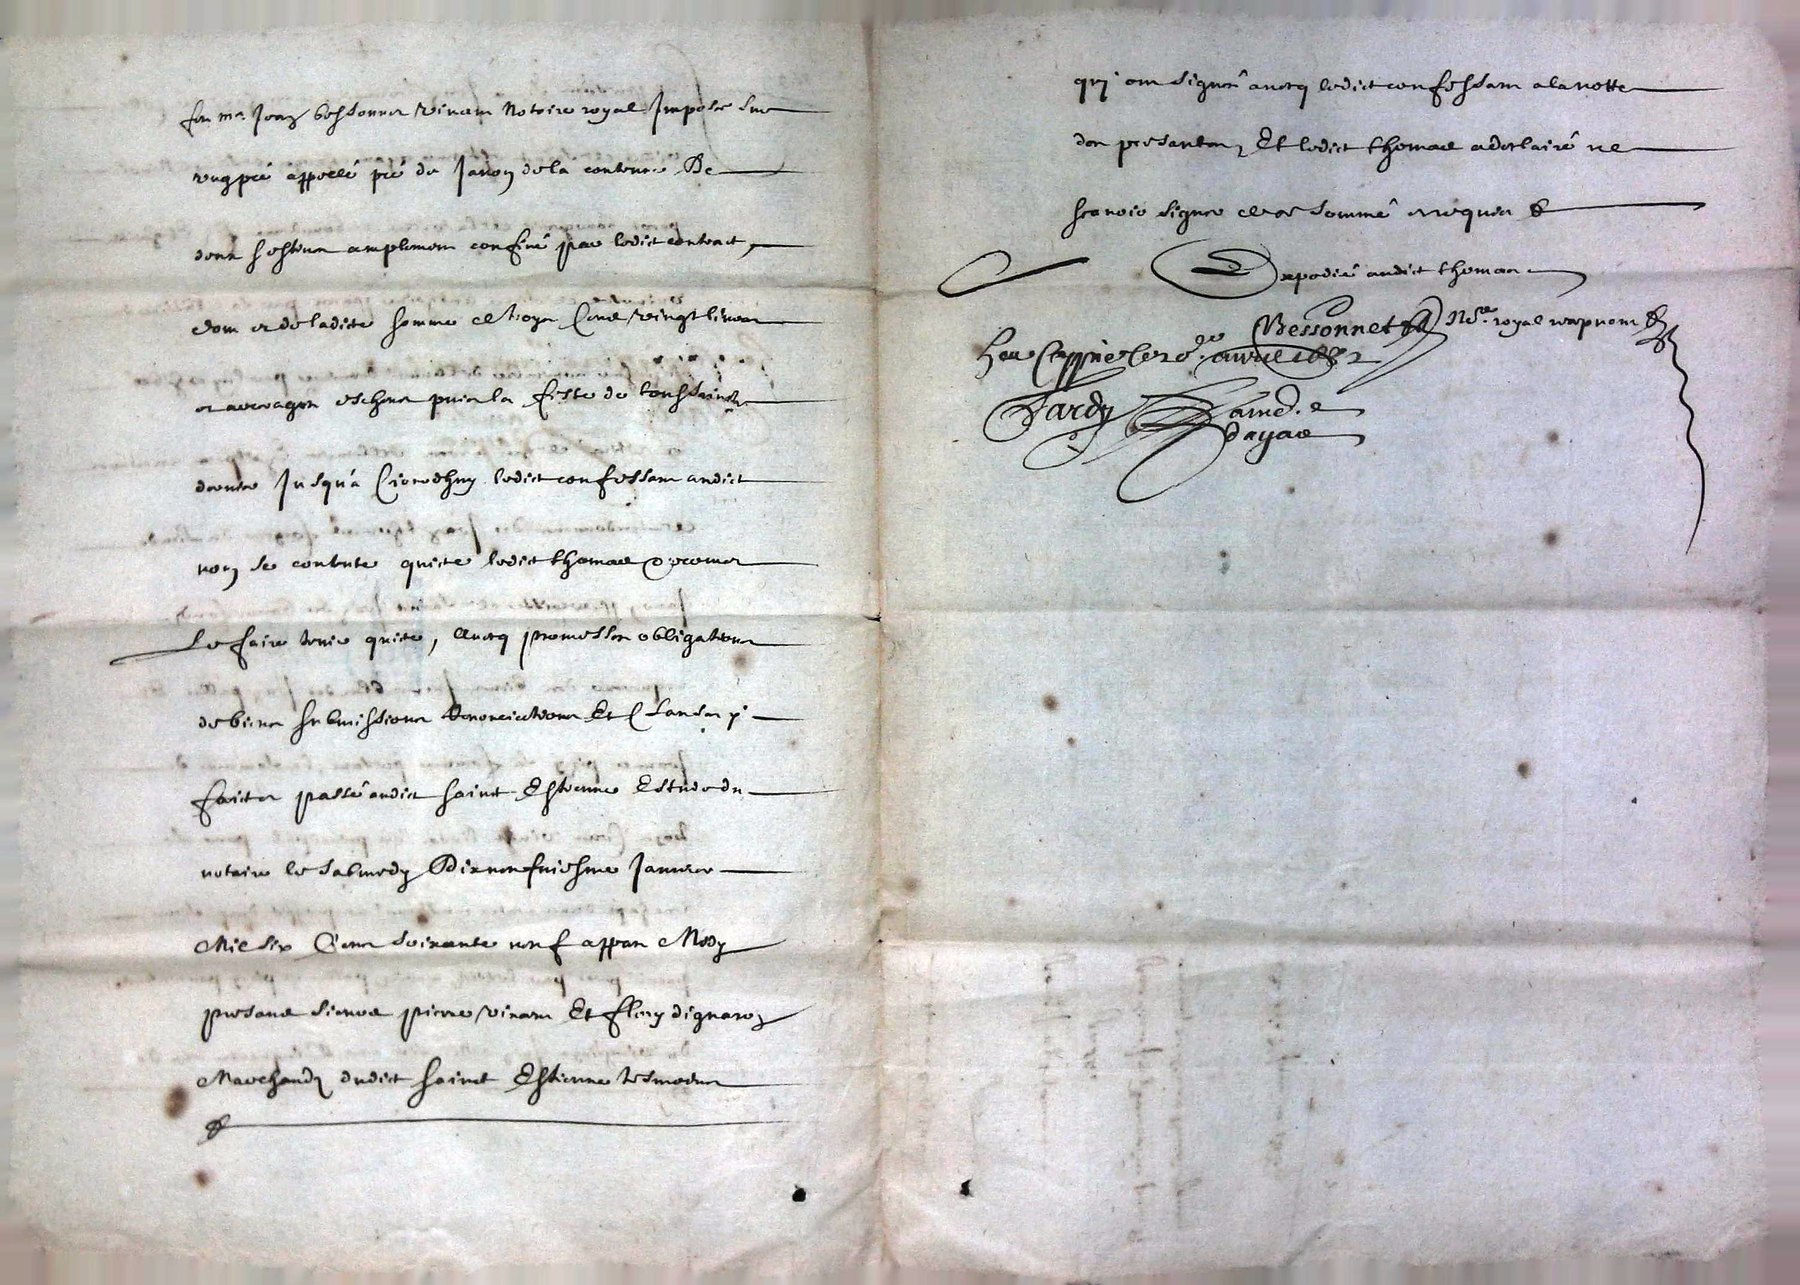 feu me Jean bessonnet vivant Notaire royal Imposé sur
ung pré appellé pré de Janon de la contenue De
deux sesteurs amplement confiné par ledict contract,
dont et de ladite somme de troys Cens vingt livres
et arreyages escheus puis la feste de toussainctz
derniere Jusqu'a Cejourdhuy ledict confessant audict
nom se contente quicte ledict thomas promet
Le faire tenir quite, Avecq promesses obligations
de biens submissions Renonciations Et Clauses
faictes passé audict sainct Estienne Estude du
notaire le sabmedy Dixneufviesme Janvier
Mil six Cens soixante neuf appres Midy
presans sieurs pierre vinam Et fleury dignaron
Marchandz dudict sainct Estienne tesmoins
quy ont signé avecq ledict confessant a la notte
des presentes, Et ledict thomas a declairé ne
scavoir signer de ce sommé et requis
Expedié audict thomas
Bessonnet Nore royal
avril 1682
Jardy